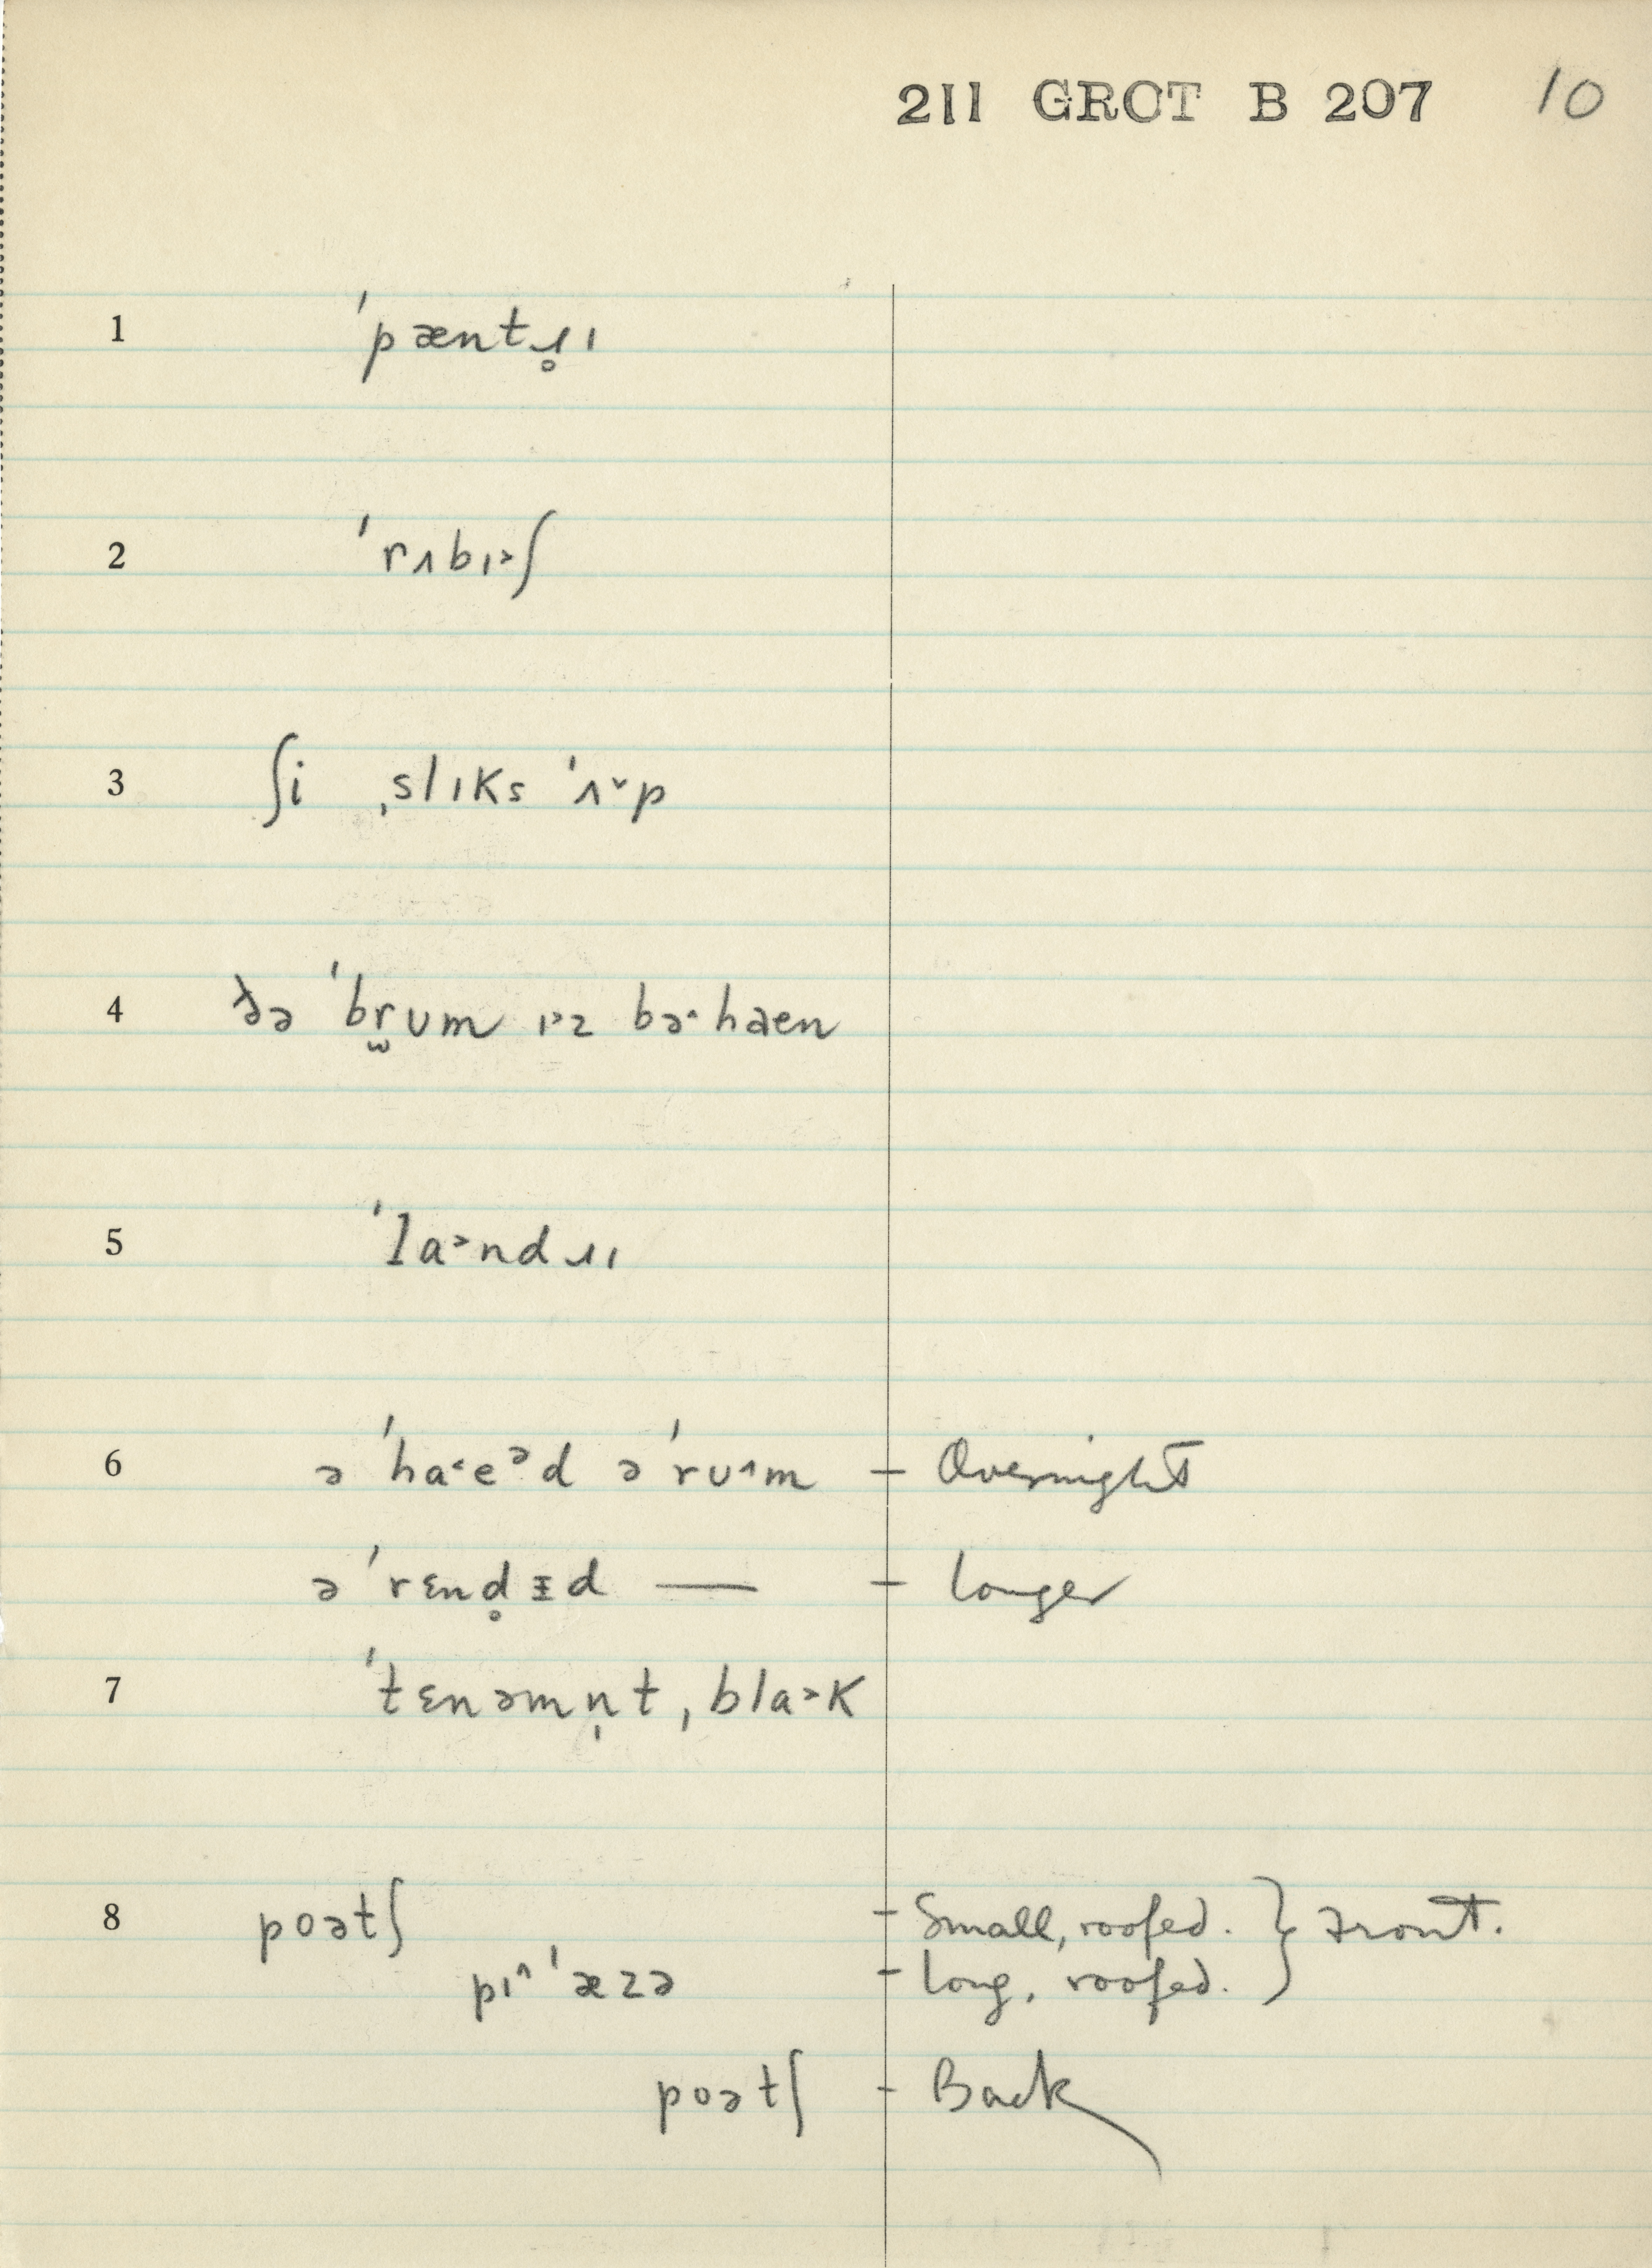 211 GROT B 207 10
1 ˈpæntɹ̥ɪ
2 ˈrʌbɪ˃ʃ
3 ʃi ˌslɪks ˈʌ˅p
4 ðə ˈbr̫ʊm ɪ˃z bə˄haen
5 ˈla˃ndɹɪ
6 ə ˈha˂eᵊd ə ˈrʊ˄m – Overnight
ə ˈrɛnd̥ᵻd — – longer
7 ˈtɛnəmn̩t ˌbla˃k
8 poətʃ – Small, roofed. } Front.
pɪ˄ ˈæzə – long, roofed.
poətʃ – Back